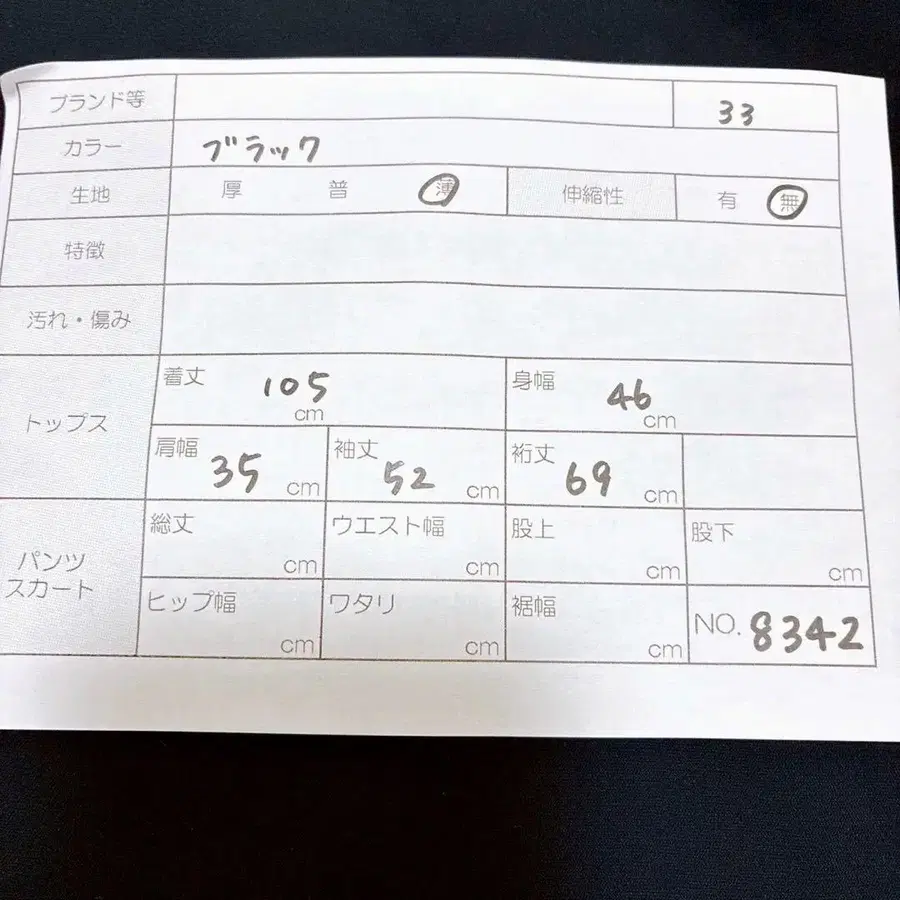 ブランド等 33
カラー ブラック
生地 厚 普 薄 伸縮性 有 無
特徴
汚れ・傷み
トップス 着丈 105 cm 身幅 46 cm
肩幅 35 cm 袖丈 52 cm 裄丈 69 cm
パンツ スカート 総丈 cm ウエスト幅 cm 股上 cm 股下 cm
ヒップ幅 cm ワタリ cm 裾幅 cm NO. 8342